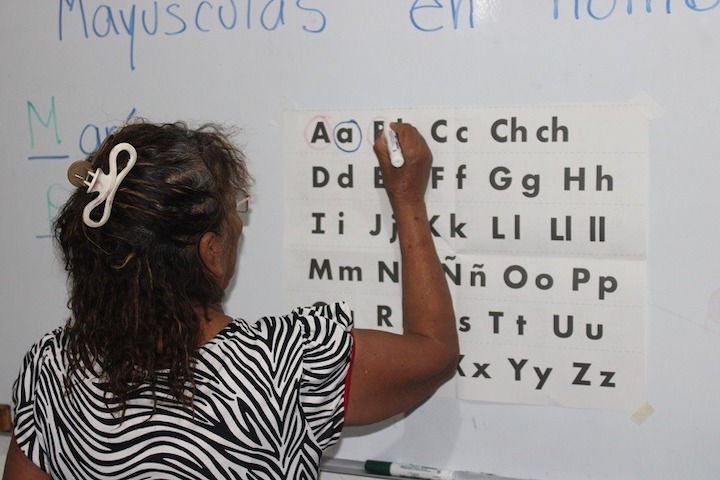 Mayusculas en
M
A a C c Ch ch
D d F f G g H h
I i J j K k L l Ll ll
M m N Ñ ñ O o P p
R s T t U u
x Y y Z z